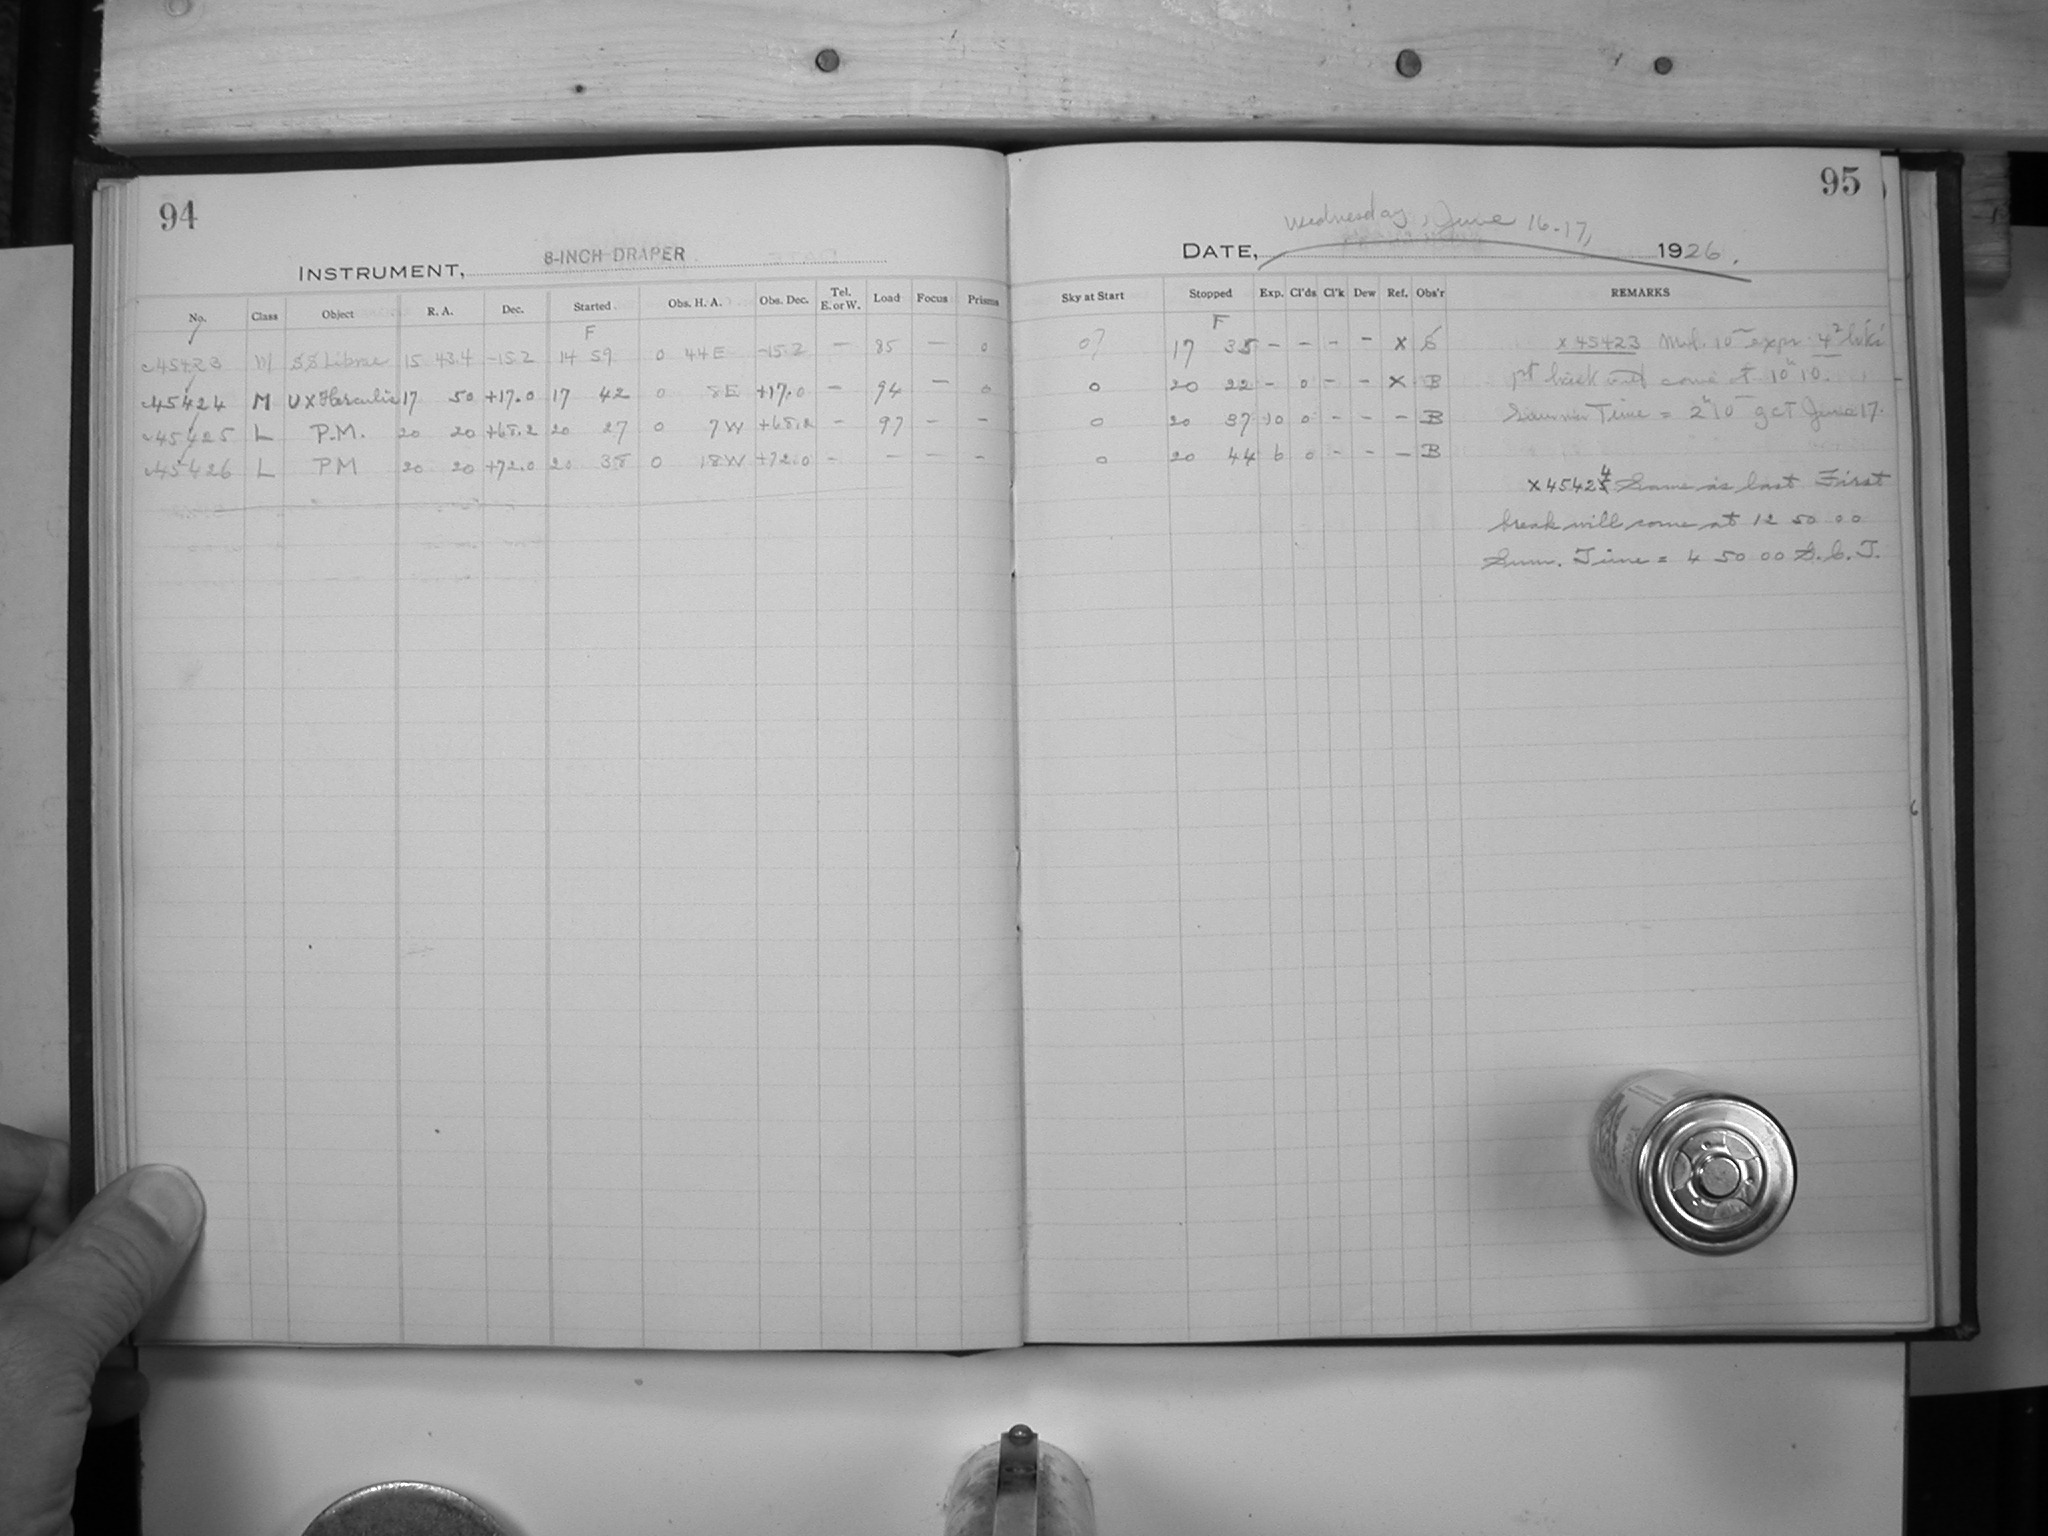 94
INSTRUMENT, 8-INCH DRAPER
No. Class Object R. A. Dec. Started Obs. H. A. Obs. Dec. Tel. E. or W. Load Focus Prisms
F
c45423 M SS Librae 15 43.4 -15.2 14 59 0 44 E -15.2 — 85 — 0
c45424 M UX Herculis 17 50 +17.0 17 42 0 8E +17.0 — 94 — 0
c45425 L P.M. 20 20 +68.2 20 27 0 7W +68.2 — 97 — —
c45426 L PM 20 20 +72.0 20 38 0 18W +72.0 - - - -
95
Wednesday, June 16-17,
DATE, 1926.
Sky at Start Stopped Exp. Cl'ds Cl'k Dew Ref. Obs'r REMARKS
F
0? 17 35 - - - - x
0 20 22 - 0 - - x B
0 20 37 10 0 - - - B
0 20 44 6 0 - - - B
x 45423 10 exps.
break will come at 10 10.
Summer Time = 2 10 gct June 17.
x 45424 Same as last First
break will come at 12 50 00
Sum. Time = 4 50 00 G.C.T.